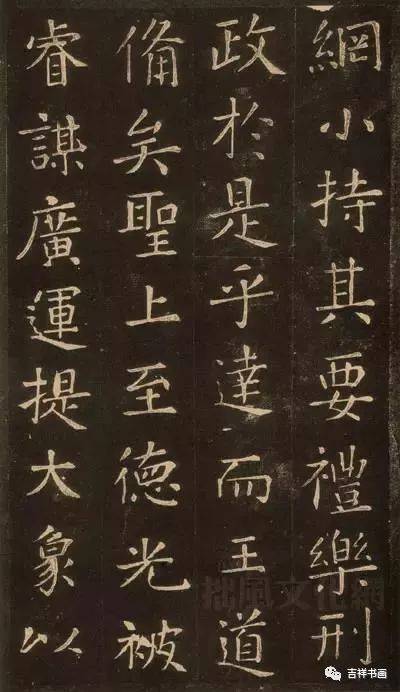 網小持其要禮樂刑
政於是乎達而王道
備矣聖上至德光被
睿謀廣運提大象以
拙風文化網
吉祥书画